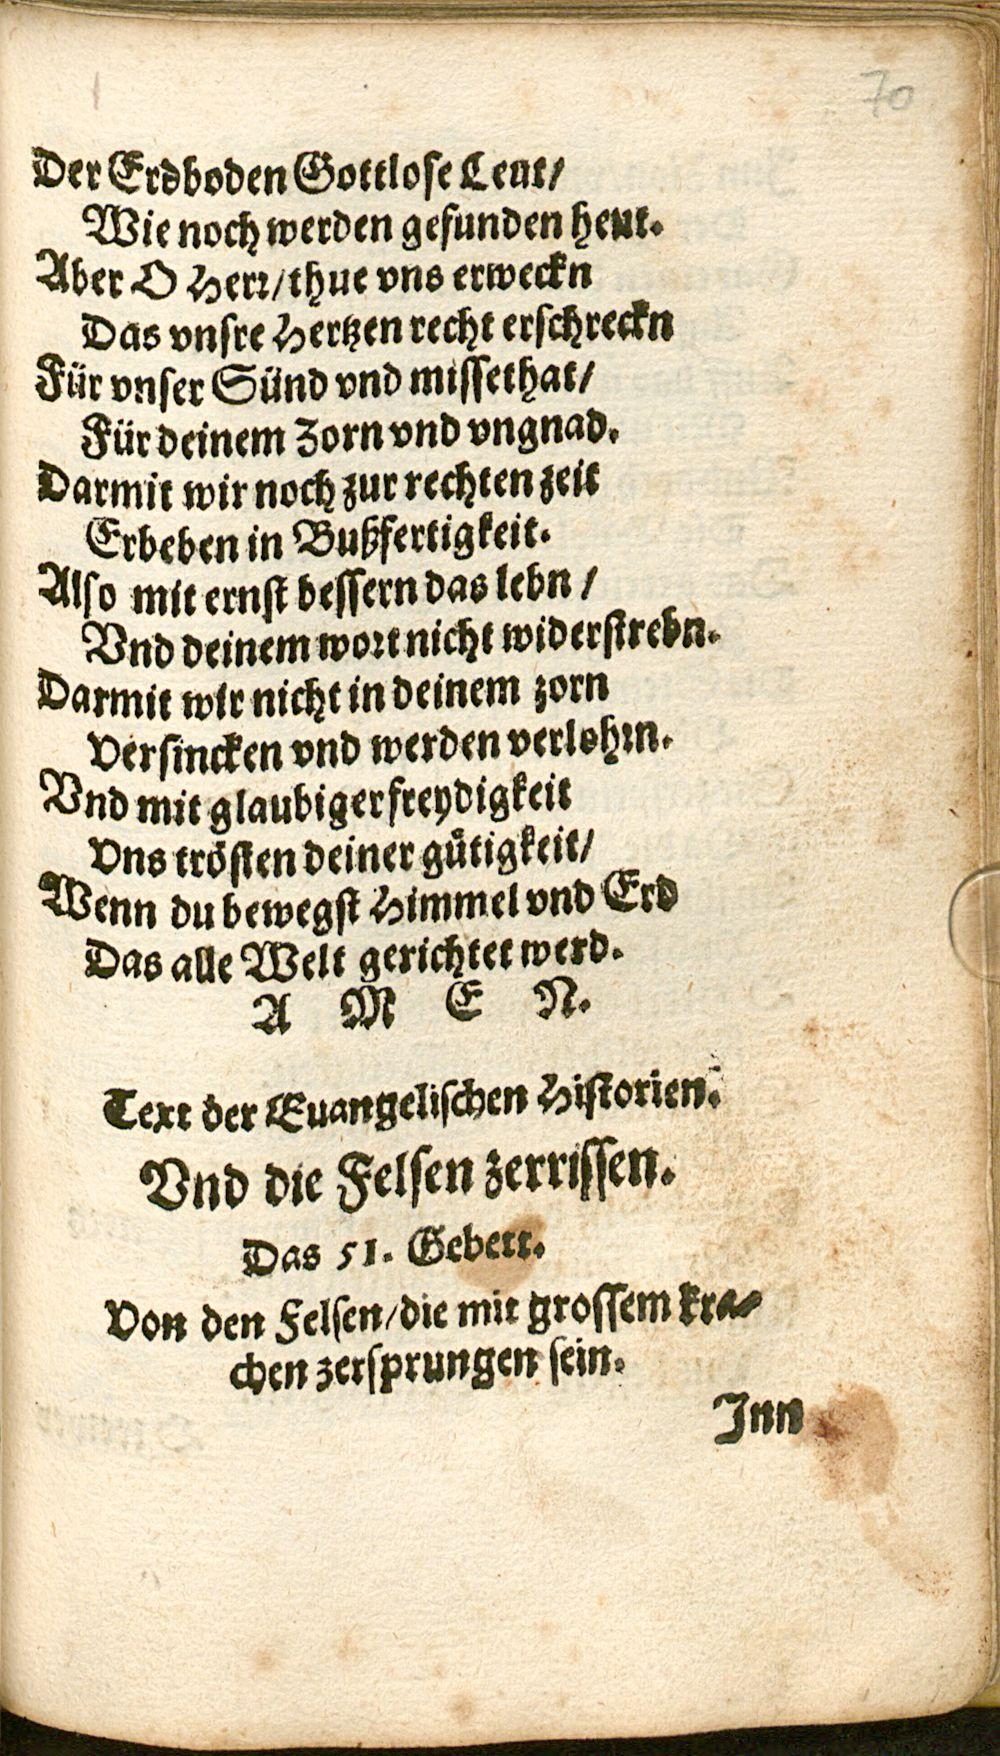 70
Der Erdboden Gottlose Leut/
Wie noch werden gefunden heut.
Aber O Herr/thue vns erweckn
Das vnsre Hertzen recht erschreckn
Für vnser Sünd vnd missethat/
Für deinem Zorn vnd vngnad.
Darmit wir noch zur rechten zeit
Erbeben in Bußfertigkeit.
Also mit ernst bessern das lebn /
Vnd deinem wort nicht widerstrebn.
Darmit wir nicht in deinem zorn
Versincken vnd werden verlohrn.
Vnd mit glaubiger freydigkeit
Vns trösten deiner gütigkeit/
Wenn du bewegst Himmel vnd Erd
Das alle Welt gerichtet werd.
A M E N.
Text der Euangelischen Historien.
Vnd die Felsen zerrissen.
Das 51. Gebett.
Von den Felsen/die mit grossem kra-
chen zersprungen sein.
Inn